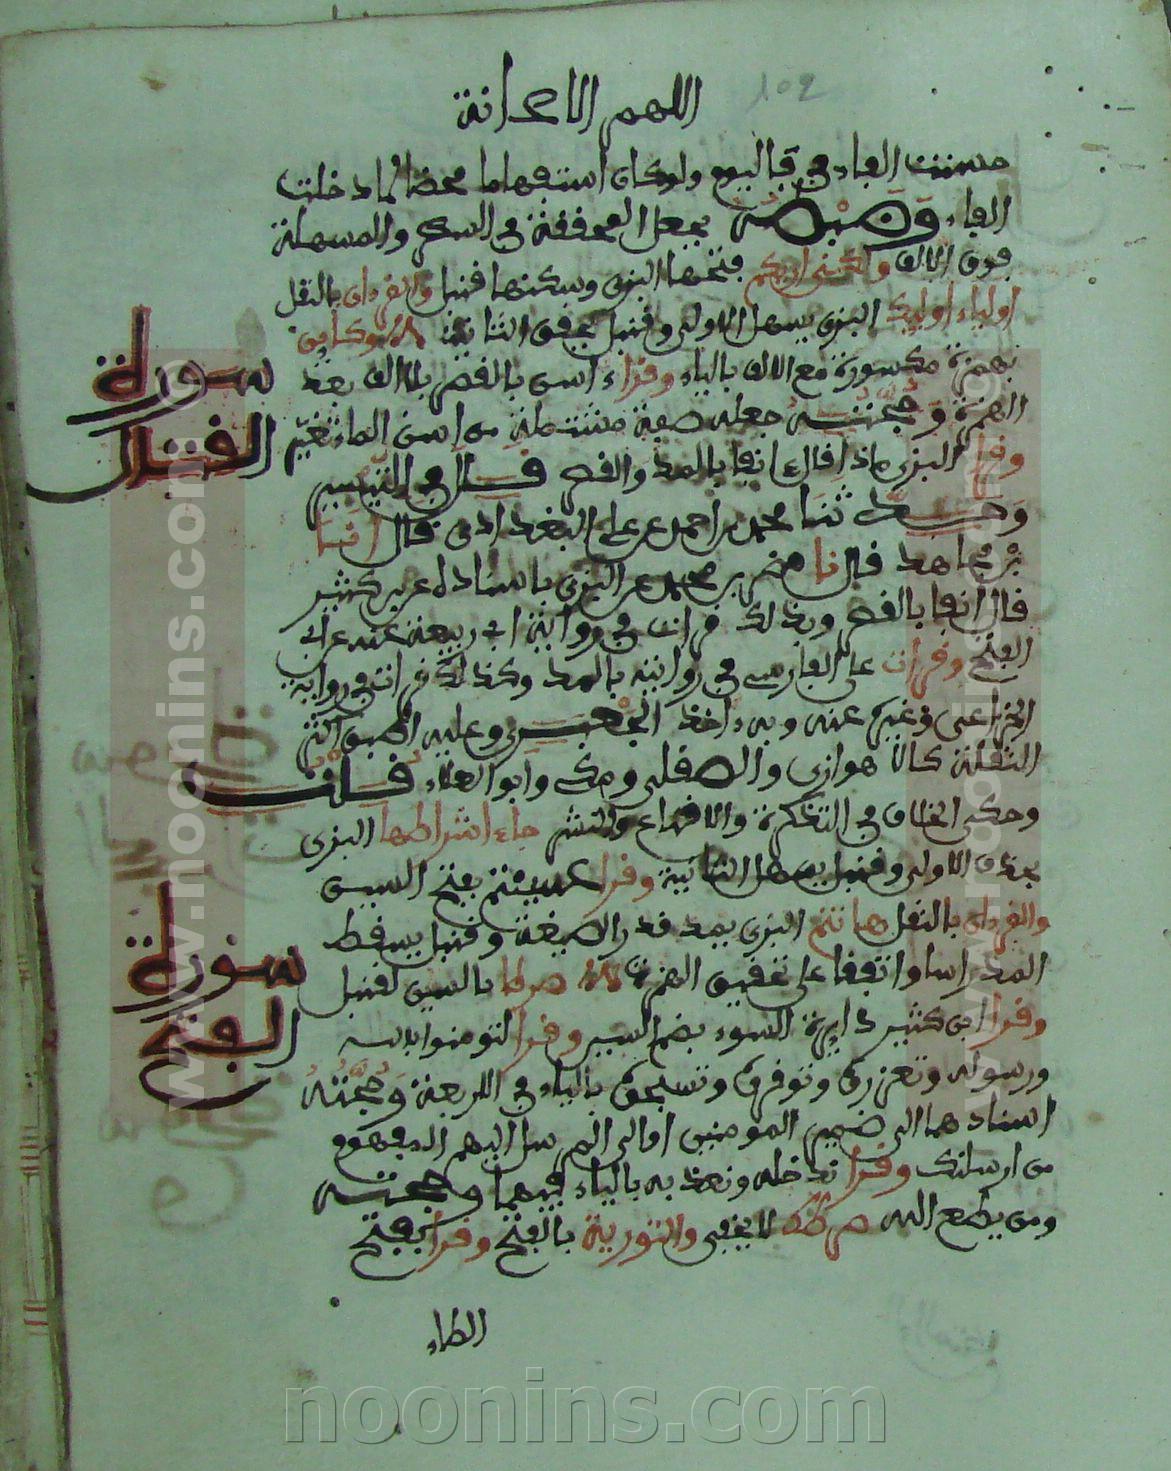 اللهم الاعانة
102
حسنت الفاء في فاليوم ولو كان استفهاما محضا لما دخلت
الفاء وضبطه بجعل المخففة في السطر والمسهلة
فوق الالف ولكني اريكم فتحها البزي وسكنها قنبل والقرءان بالنقل
اولياء اوليك البزي يسهل الاولى وقنبل يحقق الثانية وكاين
بهمزة مكسورة مع الالف بالياء وقرا اسن بالقصر بلا الف بعد
سورة
الهمزة وحجته جعله صفة مشتملة من اسن الماء تغير
القتال
وقرا البزي ماذا قال ءانفا بالمد والقصر قال في التيسير
وحدثنا محمد بن احمد بن علي البغدادي قال انا
بن مجاهد قال نا مضر بن محمد عن البزي باسناده عن بن كثير
قال انفا بالقصر وبذلك قرات في رواية ابي ربيعة عنه على ابي
الفتح وقرات على الفارسي في روايته بالمد وكذلك قرات في رواية
الخزاعي وغيره عنه وبه اخذ الجعبري وعليه اطبق اكثر
النقلة كالاهوازي والصقلي ومكي وابو العلاء قلت
وحكى الخلاف في التذكرة والاقناع والنشر جاء اشراطها البزي
بحذف الاولى وقنبل يسهل الثانية وقرا عسيتم بفتح السين
والقرءان بالنقل هانتم البزي بمد قدر الصيغة وقنبل يسقط
سورة
المد راسا واتفقا على تحقيق الهمزة صرطا بالسين لقنبل
الفتح
وقرا ابن كثير دايرة السوء بضم السين وقرا لتومنوا بالله
ورسوله وتعزروه وتوقروه وتسبحوه بالياء في الاربعة وحجته
اسنادهما الى ضمير المومنين اي الى المرسل اليهم المفهوم
من ارسلنك وقرا ندخله ونعذبه بالياء فيهما وحجته
ومن يطع الله صرطا لا يخفى والتورية بالفتح وقرا بفتح
الطاء
www.noonins.com
www.noonins.com
noonins.com